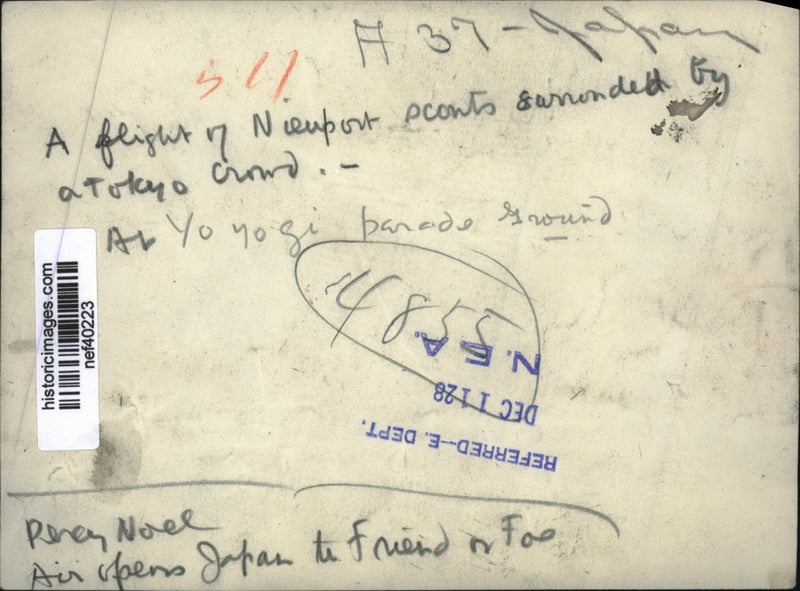 A 37 - Japan
511
A flight of Nieuport scouts surronded by
a Tokyo Crowd. -
At Yoyogi parade ground
4855
N. E. A.
DEC 11 28
REFERRED-E. DEPT.
historicimages.com
nef40223
Percy Noel
Air opens Japan to Friend or Foe